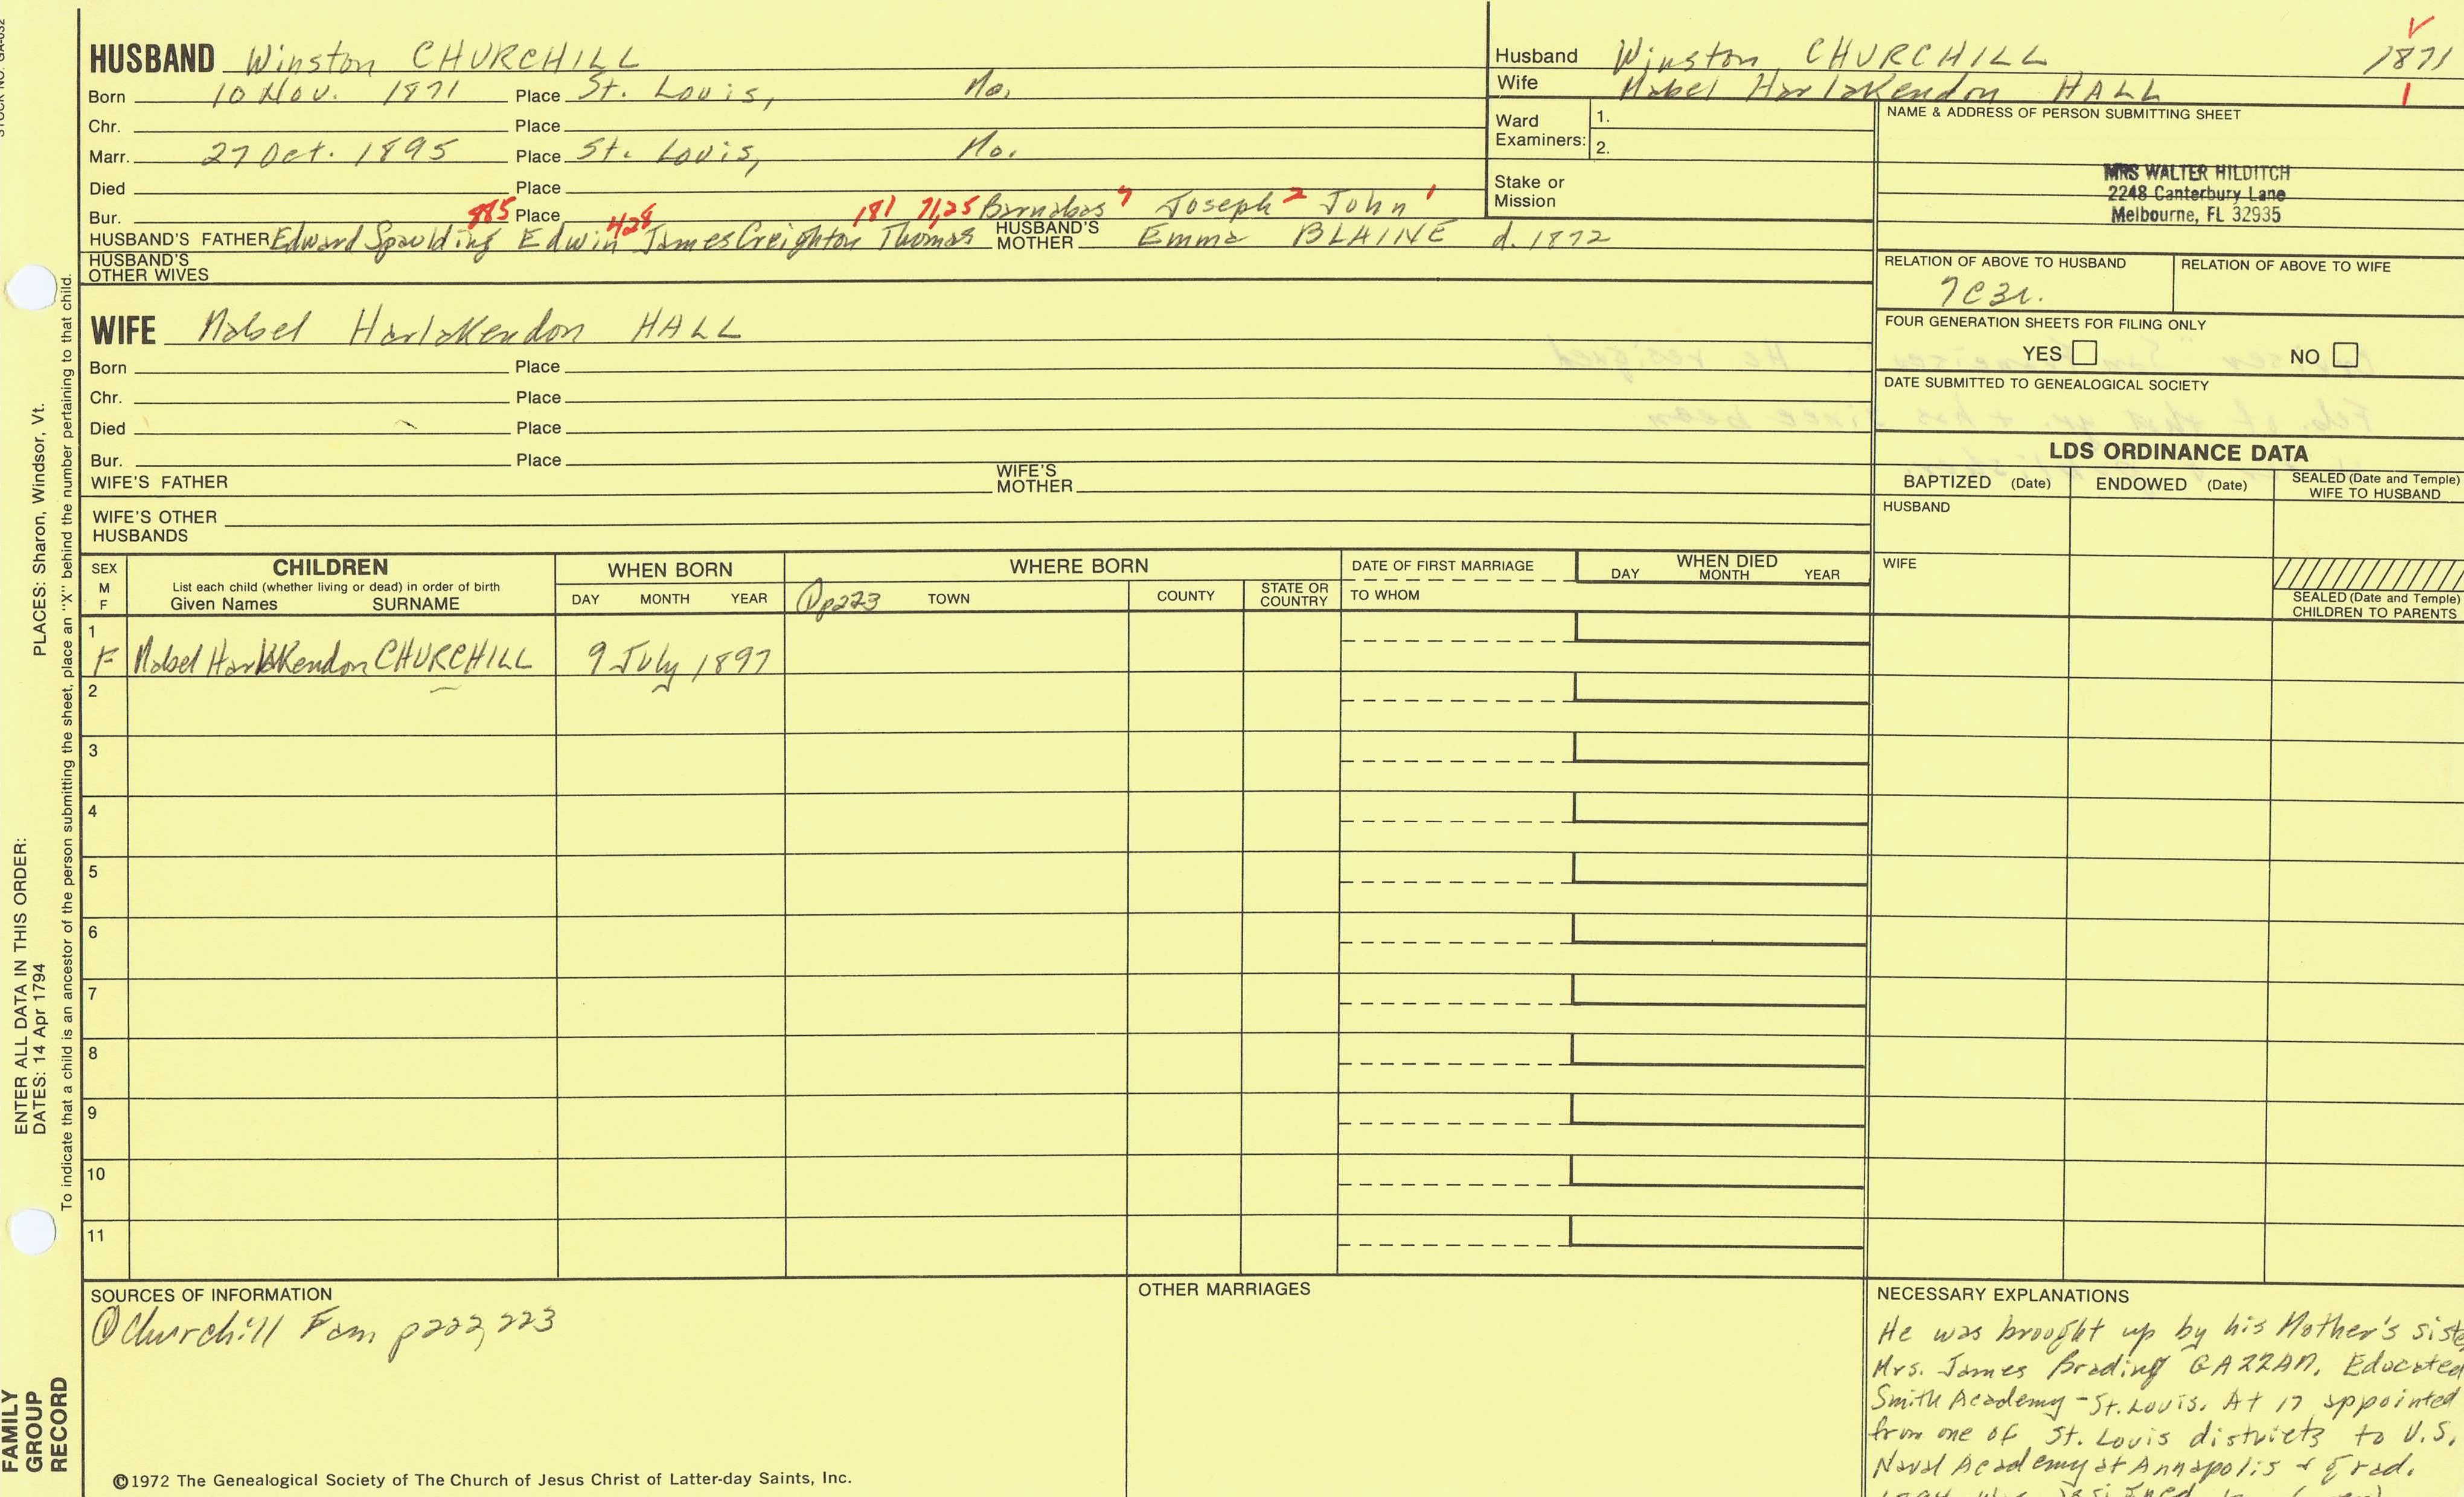 STOCK NO. GA-032
HUSBAND Winston CHURCHILL
Born 10 Nov. 1871 Place St. Louis, Mo.
Chr. Place
Marr. 27 Oct. 1895 Place St. Louis, Mo.
Died Place
Bur. 885 Place 428 181 71,25 Barnabas Joseph 2 John 1
HUSBAND'S FATHER Edward Spaulding Edwin James Creighton Thomas HUSBAND'S MOTHER Emma BLAINE d. 1872
HUSBAND'S OTHER WIVES
Husband Winston CHURCHILL 1871
Wife Mabel Harlakendon HALL 1
Ward Examiners: 1.
2.
Stake or Mission
NAME & ADDRESS OF PERSON SUBMITTING SHEET
MRS WALTER HILDITCH
2248 Canterbury Lane
Melbourne, FL 32935
RELATION OF ABOVE TO HUSBAND RELATION OF ABOVE TO WIFE
7C3r.
FOUR GENERATION SHEETS FOR FILING ONLY
YES NO
DATE SUBMITTED TO GENEALOGICAL SOCIETY
WIFE Mabel Harlakendon HALL
Born Place
Chr. Place
Died Place
Bur. Place
WIFE'S FATHER WIFE'S MOTHER
WIFE'S OTHER HUSBANDS
LDS ORDINANCE DATA
BAPTIZED (Date) ENDOWED (Date) SEALED (Date and Temple) WIFE TO HUSBAND
HUSBAND
WIFE
SEALED (Date and Temple) CHILDREN TO PARENTS
SEX M F
CHILDREN
List each child (whether living or dead) in order of birth
Given Names SURNAME
WHEN BORN
DAY MONTH YEAR
WHERE BORN
① p223 TOWN COUNTY STATE OR COUNTRY
DATE OF FIRST MARRIAGE
TO WHOM
WHEN DIED
DAY MONTH YEAR
1
F Mabel Harlakendon CHURCHILL 9 July 1897
2
3
4
5
6
7
8
9
10
11
SOURCES OF INFORMATION
① Churchill Fam p222, 223
OTHER MARRIAGES
NECESSARY EXPLANATIONS
He was brought up by his Mother's siste
Mrs. James Brading GAZZAM. Educated
Smith Academy - St. Louis. At 17 appointed
from one of St. Louis districts to U.S.
Naval Academy at Annapolis & grad.
©1972 The Genealogical Society of The Church of Jesus Christ of Latter-day Saints, Inc.
FAMILY GROUP RECORD
ENTER ALL DATA IN THIS ORDER:
DATES: 14 Apr 1794
PLACES: Sharon, Windsor, Vt.
To indicate that a child is an ancestor of the person submitting the sheet, place an "X" behind the number pertaining to that child.